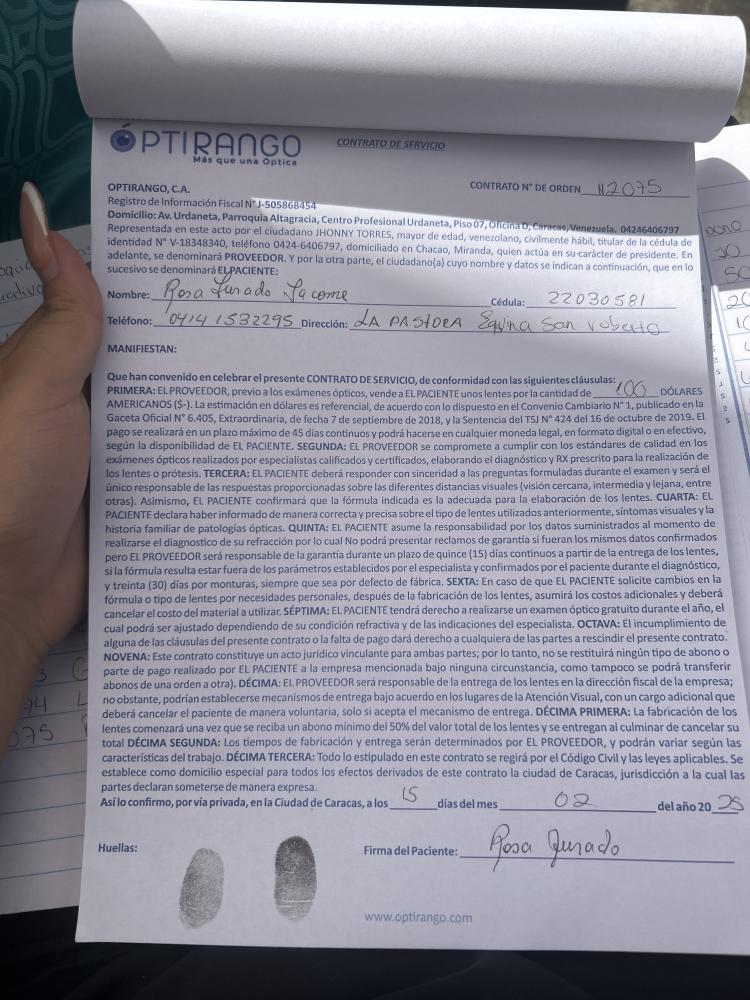 ÓPTIRANGO
Más que una Óptica
CONTRATO DE SERVICIO
OPTIRANGO, C.A.
CONTRATO N° DE ORDEN 112075
Registro de Información Fiscal N° J-505868454
Domicilio: Av. Urdaneta, Parroquia Altagracia, Centro Profesional Urdaneta, Piso 07, Oficina D, Caracas, Venezuela. 04246406797
Representada en este acto por el ciudadano JHONNY TORRES, mayor de edad, venezolano, civilmente hábil, titular de la cédula de
identidad N° V-18348340, teléfono 0424-6406797, domiciliado en Chacao, Miranda, quien actúa en su carácter de presidente. En
adelante, se denominará PROVEEDOR. Y por la otra parte, el ciudadano(a) cuyo nombre y datos se indican a continuación, que en lo
sucesivo se denominará EL PACIENTE:
Nombre: Rosa Jurado Jacome Cédula: 22030581
Teléfono: 04141532295 Dirección: LA PASTORA Eqvina San roberto
MANIFIESTAN:
Que han convenido en celebrar el presente CONTRATO DE SERVICIO, de conformidad con las siguientes cláusulas:
PRIMERA: EL PROVEEDOR, previo a los exámenes ópticos, vende a EL PACIENTE unos lentes por la cantidad de 100 DÓLARES
AMERICANOS ($-). La estimación en dólares es referencial, de acuerdo con lo dispuesto en el Convenio Cambiario N° 1, publicado en la
Gaceta Oficial N° 6.405, Extraordinaria, de fecha 7 de septiembre de 2018, y la Sentencia del TSJ N° 424 del 16 de octubre de 2019. El
pago se realizará en un plazo máximo de 45 días continuos y podrá hacerse en cualquier moneda legal, en formato digital o en efectivo,
según la disponibilidad de EL PACIENTE. SEGUNDA: EL PROVEEDOR se compromete a cumplir con los estándares de calidad en los
exámenes ópticos realizados por especialistas calificados y certificados, elaborando el diagnóstico y RX prescrito para la realización de
los lentes o prótesis. TERCERA: EL PACIENTE deberá responder con sinceridad a las preguntas formuladas durante el examen y será el
único responsable de las respuestas proporcionadas sobre las diferentes distancias visuales (visión cercana, intermedia y lejana, entre
otras). Asimismo, EL PACIENTE confirmará que la fórmula indicada es la adecuada para la elaboración de los lentes. CUARTA: EL
PACIENTE declara haber informado de manera correcta y precisa sobre el tipo de lentes utilizados anteriormente, síntomas visuales y la
historia familiar de patologías ópticas. QUINTA: EL PACIENTE asume la responsabilidad por los datos suministrados al momento de
realizarse el diagnostico de su refracción por lo cual No podrá presentar reclamos de garantía si fueran los mismos datos confirmados
pero EL PROVEEDOR será responsable de la garantía durante un plazo de quince (15) días continuos a partir de la entrega de los lentes,
si la fórmula resulta estar fuera de los parámetros establecidos por el especialista y confirmados por el paciente durante el diagnóstico,
y treinta (30) días por monturas, siempre que sea por defecto de fábrica. SEXTA: En caso de que EL PACIENTE solicite cambios en la
fórmula o tipo de lentes por necesidades personales, después de la fabricación de los lentes, asumirá los costos adicionales y deberá
cancelar el costo del material a utilizar. SÉPTIMA: EL PACIENTE tendrá derecho a realizarse un examen óptico gratuito durante el año, el
cual podrá ser ajustado dependiendo de su condición refractiva y de las indicaciones del especialista. OCTAVA: El incumplimiento de
alguna de las cláusulas del presente contrato o la falta de pago dará derecho a cualquiera de las partes a rescindir el presente contrato.
NOVENA: Este contrato constituye un acto jurídico vinculante para ambas partes; por lo tanto, no se restituirá ningún tipo de abono o
parte de pago realizado por EL PACIENTE a la empresa mencionada bajo ninguna circunstancia, como tampoco se podrá transferir
abonos de una orden a otra). DÉCIMA: EL PROVEEDOR será responsable de la entrega de los lentes en la dirección fiscal de la empresa;
no obstante, podrían establecerse mecanismos de entrega bajo acuerdo en los lugares de la Atención Visual, con un cargo adicional que
deberá cancelar el paciente de manera voluntaria, solo si acepta el mecanismo de entrega. DÉCIMA PRIMERA: La fabricación de los
lentes comenzará una vez que se reciba un abono mínimo del 50% del valor total de los lentes y se entregan al culminar de cancelar su
total DÉCIMA SEGUNDA: Los tiempos de fabricación y entrega serán determinados por EL PROVEEDOR, y podrán variar según las
características del trabajo. DÉCIMA TERCERA: Todo lo estipulado en este contrato se regirá por el Código Civil y las leyes aplicables. Se
establece como domicilio especial para todos los efectos derivados de este contrato la ciudad de Caracas, jurisdicción a la cual las
partes declaran someterse de manera expresa.
Así lo confirmo, por vía privada, en la Ciudad de Caracas, a los 15 días del mes 02 del año 2025
Huellas:
Firma del Paciente: Rosa Jurado
www.optirango.com